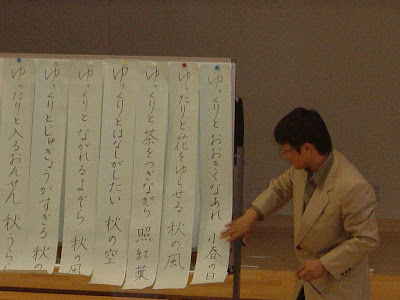 ゆっくりとおおきくなあれ 小春の日
ゆったりと花をゆらせる 秋の風
ゆっくりと茶をつぎながら 照紅葉
ゆっくりとはなしがしたい 秋の空
ゆっくりとながれるよぞら 秋の風
ゆっくりとじゅぎょうがすぎる 秋の
ゆったりと入るおんせん 秋うらら